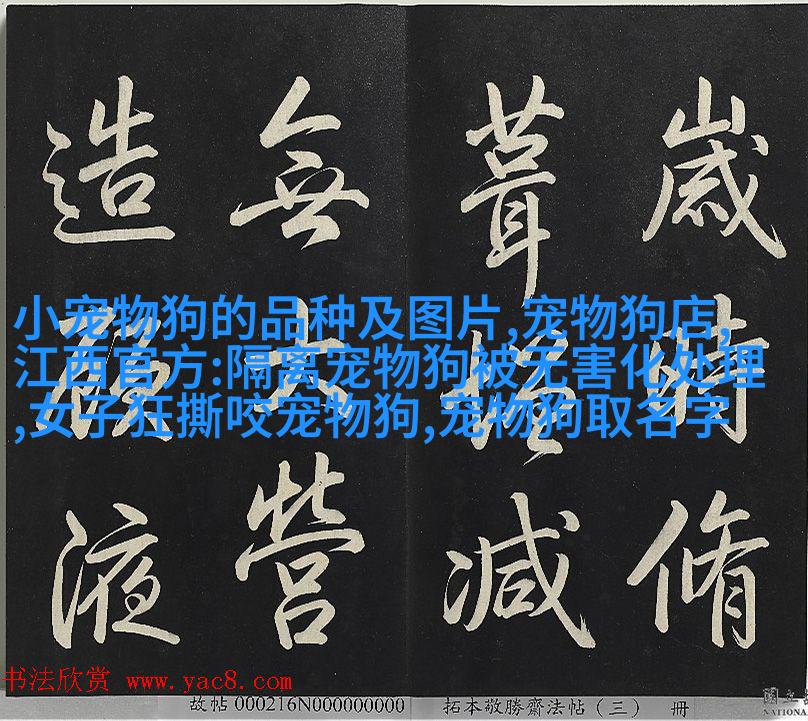 歲脩
葺減
無營
造液
小宠物狗的品种及图片,宠物狗店,
江西官方:隔离宠物狗被无害化处理
,女子狂撕咬宠物狗,宠物狗取名字
书法欣赏 www.yac8.com
故帖 000216N000000000 拓本敬勝齋法帖（三） 冊
國立
NATIONA